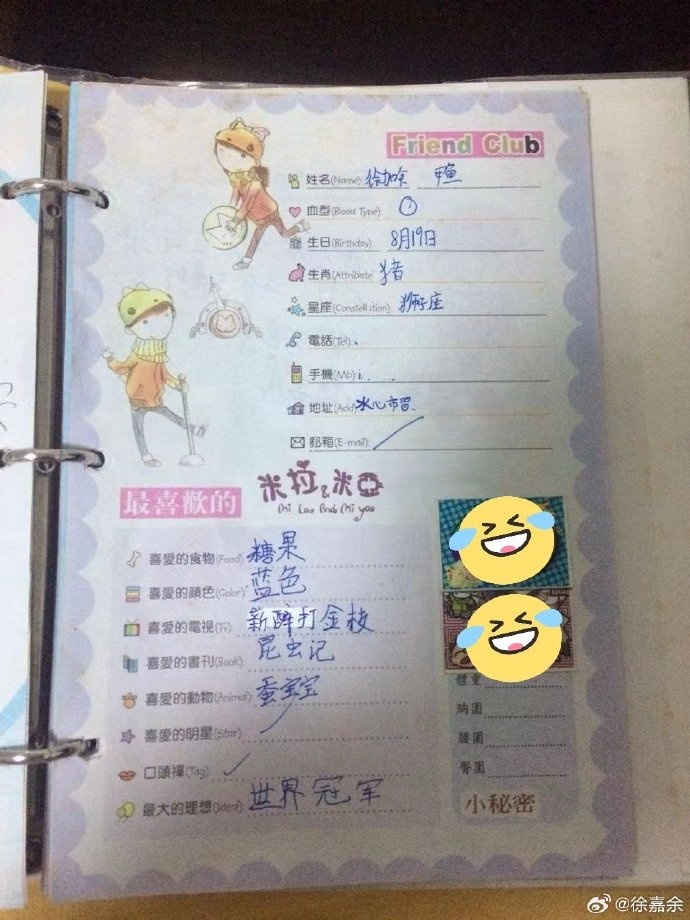 Friend Club
姓名(Name) 徐加余 甲鱼
血型(Blood Type) O
生日(Birthday) 8月19日
生肖(Attribute) 猪
星座(Constellation) 狮子座
電話(Tel)
手機(Mb)
地址(Add) 水心市
郵箱(E-mail)
米拉&米亞
Mi Laa And Mi yaa
最喜歡的
喜愛的食物(Food) 糖果
喜愛的顔色(Color) 蓝色
喜愛的電視(Tv) 新醉打金枝
喜愛的書刊(Book) 昆虫记
喜愛的動物(Animal) 蚕宝宝
喜愛的明星(Star)
口頭禪(Tag) ✓
最大的理想(Ideal) 世界冠军
體重
胸圍
腰圍
臀圍
小秘密
@徐嘉余